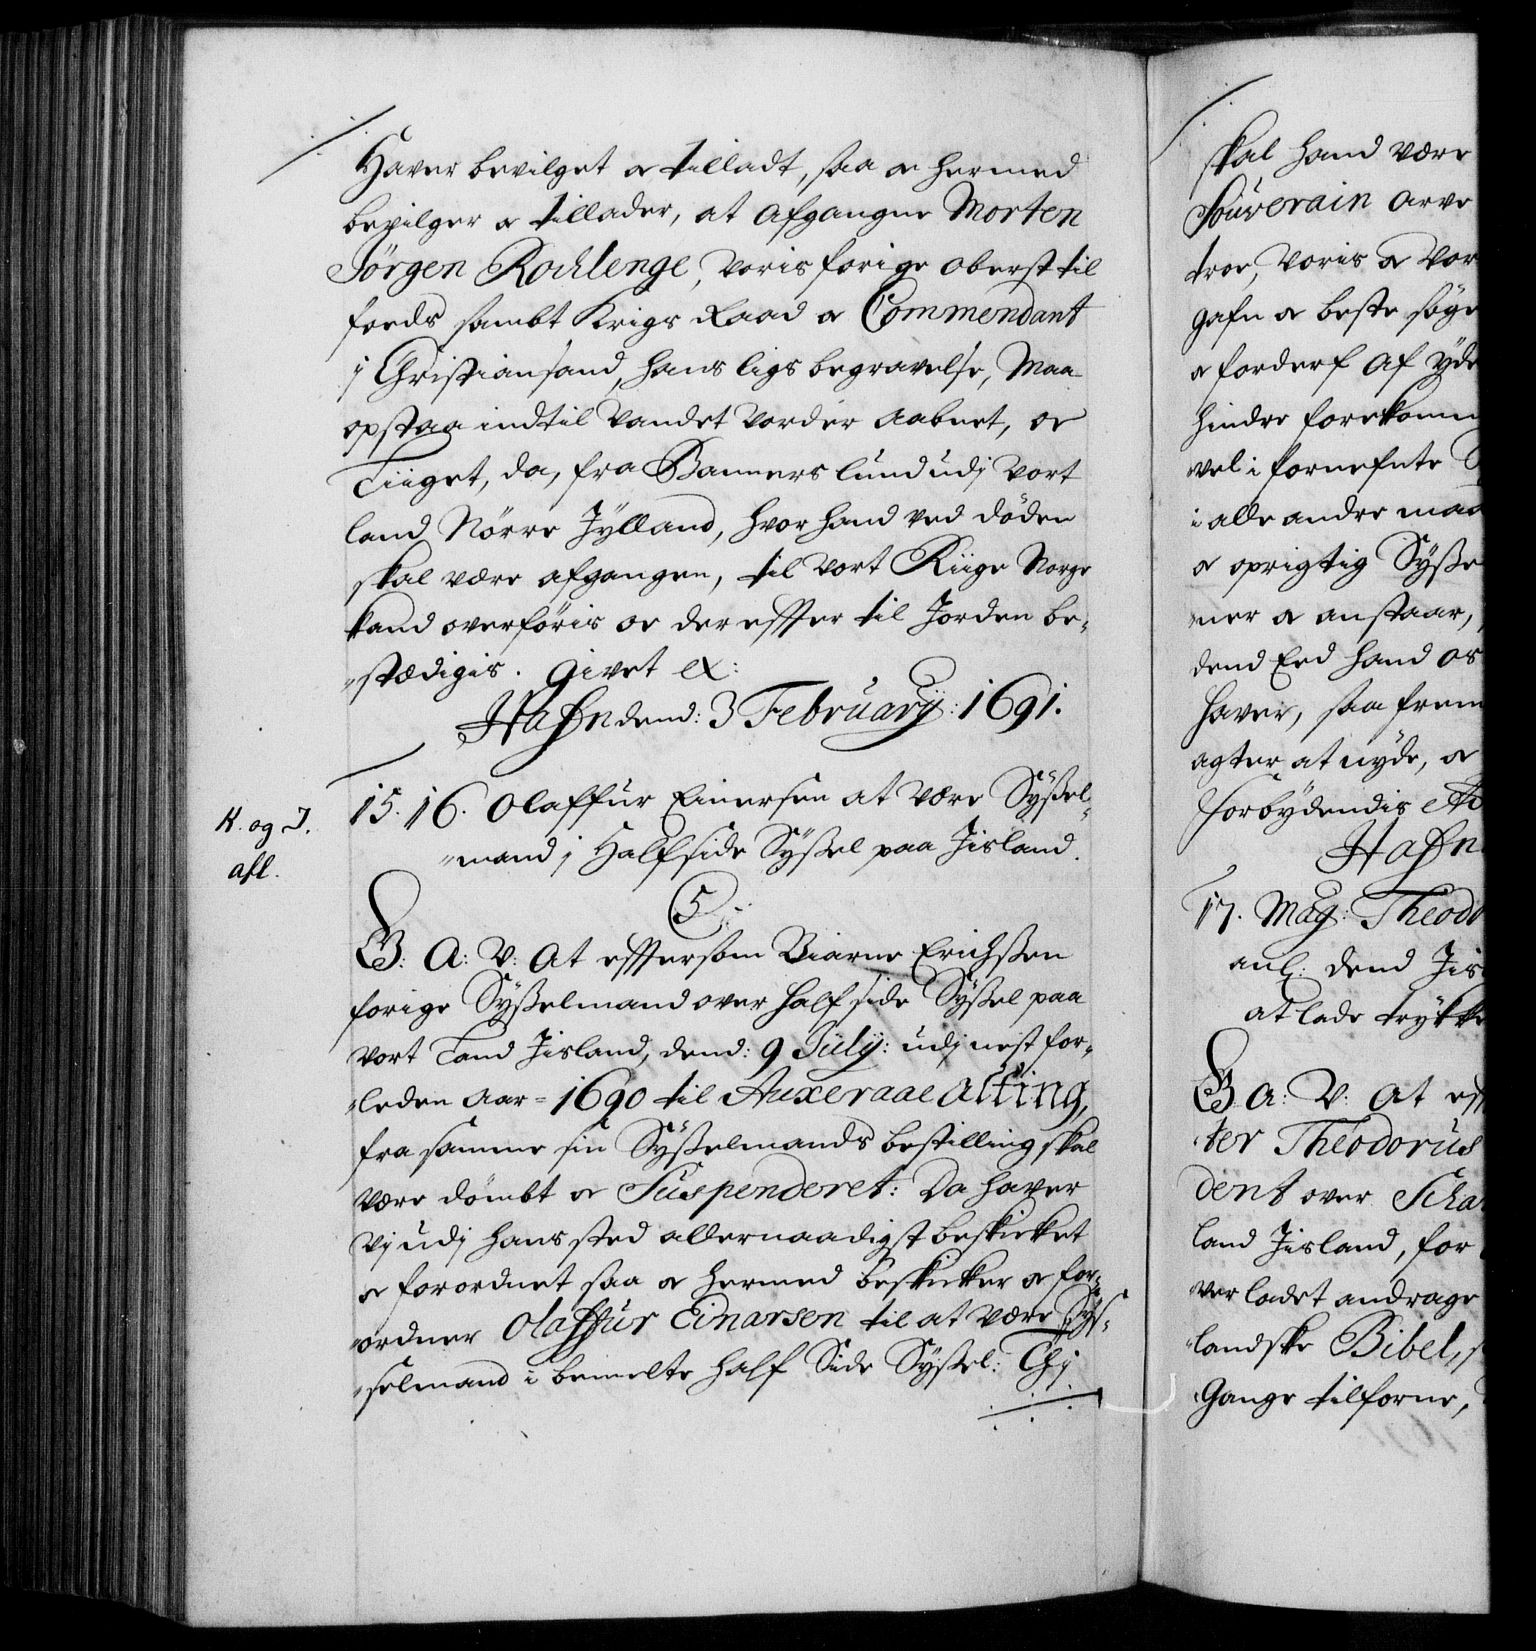 Hafver bevilget oc tilladt, saa oc hermed
bevilger oc tillader, at afgangne Morten
Jörgen Rochlenge, voris forige Oberst til
foeds sambt Krigs Raad oc Commendant
j Christiansand, hans ligs begravelse, Maa
opstaa indtil Vandet vorder aabnet, oc
Liiget, da, fra Bannerslund udj vort
land Nörre Jylland, hvor hand ved döden
skal være afgangen, til vort Riige Norge
kand overföris oc der effter til Jorden be-
stædigis. Givet ex:
Hafn dend: 3 February: 1691.
15. 16. Olaffur Einersen at være Sysßel-
mand j Halfside Sysßel paa Jisland.
K. og I.
afl.
5
G: A: V: At effersom Biarne Erichsßen
forige Sysßelmand over half side Sysßel paa
vort Land Jisland, dend: 9 July: udj nest for-
leden Aar = 1690 til Auxeraae alting,
fra samme sin Sysßelmands bestilling skal
være dömbt oc Suspenderet: Da hafver
Vj udj hans sted allernaadigst beskicket
oc forordnet saa oc hermed beskicker oc for-
ordner Olaffur Einarsen til at være Sys-
selmand i bemelte half Side Sysßel: Thj
skal hand være
Souverain Arve
troe, voris oc vor
gafn oc beste söge
oc forderf af yde
hindre forekomm
vel i fornefnte
i alle andre maa
oc oprigtig Sysße
mer oc anstaar,
dend Eed hand os
hafver, saafrem
agter at nyde, oc
Forbydendis
Hafn
17. Mag: Theodo
anl: dend Jis
at lade trykke
G A: V: At eff
ter Theodorus
dent over Scha
land Jisland, for
ver ladet andrage
landske Bibel,
Gange tilforne,